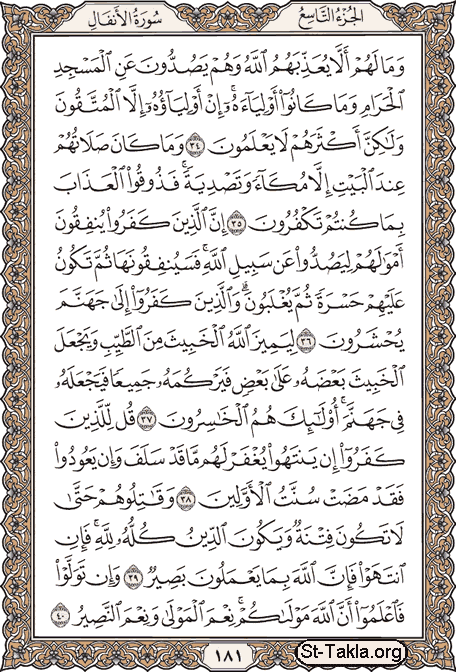 سُورَةُ الأَنفَال الجُزْءُ التَّاسِعُ
وَمَا لَهُمْ أَلَّا يُعَذِّبَهُمُ ٱللَّهُ وَهُمْ يَصُدُّونَ عَنِ ٱلْمَسْجِدِ
ٱلْحَرَامِ وَمَا كَانُوٓا۟ أَوْلِيَآءَهُۥٓ ۚ إِنْ أَوْلِيَآؤُهُۥٓ إِلَّا ٱلْمُتَّقُونَ
وَلَٰكِنَّ أَكْثَرَهُمْ لَا يَعْلَمُونَ ٣٤ وَمَا كَانَ صَلَاتُهُمْ
عِندَ ٱلْبَيْتِ إِلَّا مُكَآءً وَتَصْدِيَةً ۚ فَذُوقُوا۟ ٱلْعَذَابَ
بِمَا كُنتُمْ تَكْفُرُونَ ٣٥ إِنَّ ٱلَّذِينَ كَفَرُوا۟ يُنفِقُونَ
أَمْوَٰلَهُمْ لِيَصُدُّوا۟ عَن سَبِيلِ ٱللَّهِ ۚ فَسَيُنفِقُونَهَا ثُمَّ تَكُونُ
عَلَيْهِمْ حَسْرَةً ثُمَّ يُغْلَبُونَ ۗ وَٱلَّذِينَ كَفَرُوٓا۟ إِلَىٰ جَهَنَّمَ
يُحْشَرُونَ ٣٦ لِيَمِيزَ ٱللَّهُ ٱلْخَبِيثَ مِنَ ٱلطَّيِّبِ وَيَجْعَلَ
ٱلْخَبِيثَ بَعْضَهُۥ عَلَىٰ بَعْضٍ فَيَرْكُمَهُۥ جَمِيعًا فَيَجْعَلَهُۥ
فِى جَهَنَّمَ ۚ أُو۟لَٰٓئِكَ هُمُ ٱلْخَٰسِرُونَ ٣٧ قُل لِّلَّذِينَ
كَفَرُوٓا۟ إِن يَنتَهُوا۟ يُغْفَرْ لَهُم مَّا قَدْ سَلَفَ وَإِن يَعُودُوا۟
فَقَدْ مَضَتْ سُنَّتُ ٱلْأَوَّلِينَ ٣٨ وَقَٰتِلُوهُمْ حَتَّىٰ
لَا تَكُونَ فِتْنَةٌ وَيَكُونَ ٱلدِّينُ كُلُّهُۥ لِلَّهِ ۚ فَإِنِ
ٱنتَهَوْا۟ فَإِنَّ ٱللَّهَ بِمَا يَعْمَلُونَ بَصِيرٌ ٣٩ وَإِن تَوَلَّوْا۟
فَٱعْلَمُوٓا۟ أَنَّ ٱللَّهَ مَوْلَىٰكُمْ ۚ نِعْمَ ٱلْمَوْلَىٰ وَنِعْمَ ٱلنَّصِيرُ ٤٠
١٨١
St-Takla.org